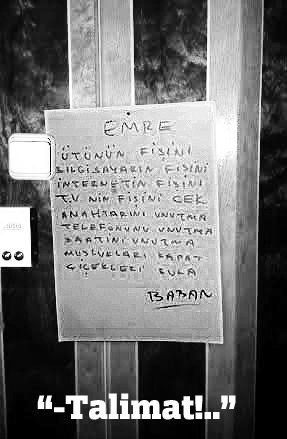 EMRE
ÜTÜNÜN FİŞİNİ
BİLGİSAYARIN FİŞİNİ
İNTERNETİN FİŞİNİ
T.V. NİN FİŞİNİ ÇEK
ANAHTARINI UNUTMA
TELEFONUNU UNUTMA
SAATİNİ UNUTMA
MUSLUKLARI KAPAT
ÇİÇEKLERİ SULA
BABAN
“-Talimat!..”